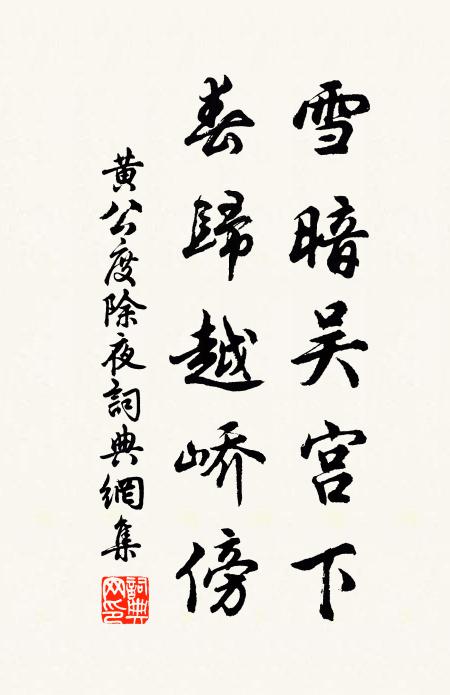 雪暗吴宫下
春歸越嶠傍
黄公度除夜詞典網集
詞典网印